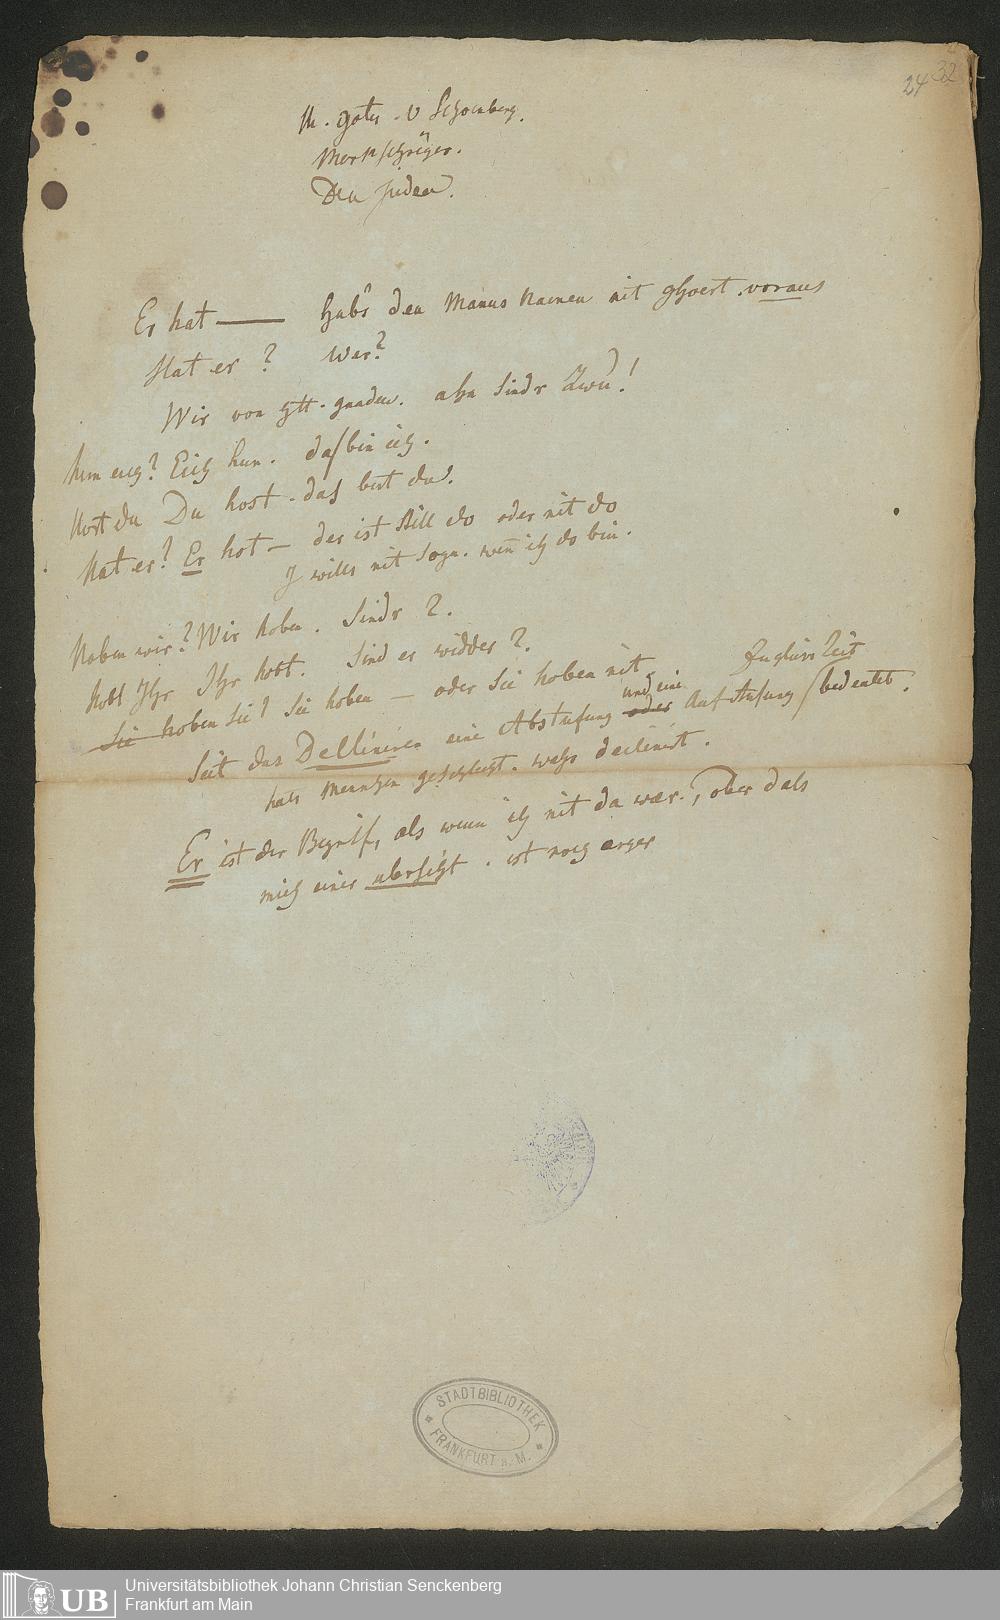 24 32
M. gotes. v Schoenberg.
Den juden.
Er hat — hab's den Manns Namen nit ghoert voraus
Hat er? Wer?
Wir von gtt. gnaden. aha sinds Zwei!
hun euch? Eich hun. das bin ich.
Host du Du host. das bist du.
Hat er? Er hot — der ist still do oder nit do
I wills nit sogn. wenn ich do bin.
Hoben wir? Wir hoben. Sinds 2.
Hobt Ihr Ihr hobt. Sind es widder 2.
Sie hoben Sie? Sie hoben — oder Sie hoben nit
Seit das Decliniren eine Abstufung oder und eine Aufstufung zugleich Zeit bedeutet.
hats Menschen declinirt.
Er ist der Begriff, als wenn ich nit da wær, oder dass
mich einer ubersicht. ist noch arger
STADTBIBLIOTHEK
FRANKFURT a. M.
UB
Universitätsbibliothek Johann Christian Senckenberg
Frankfurt am Main